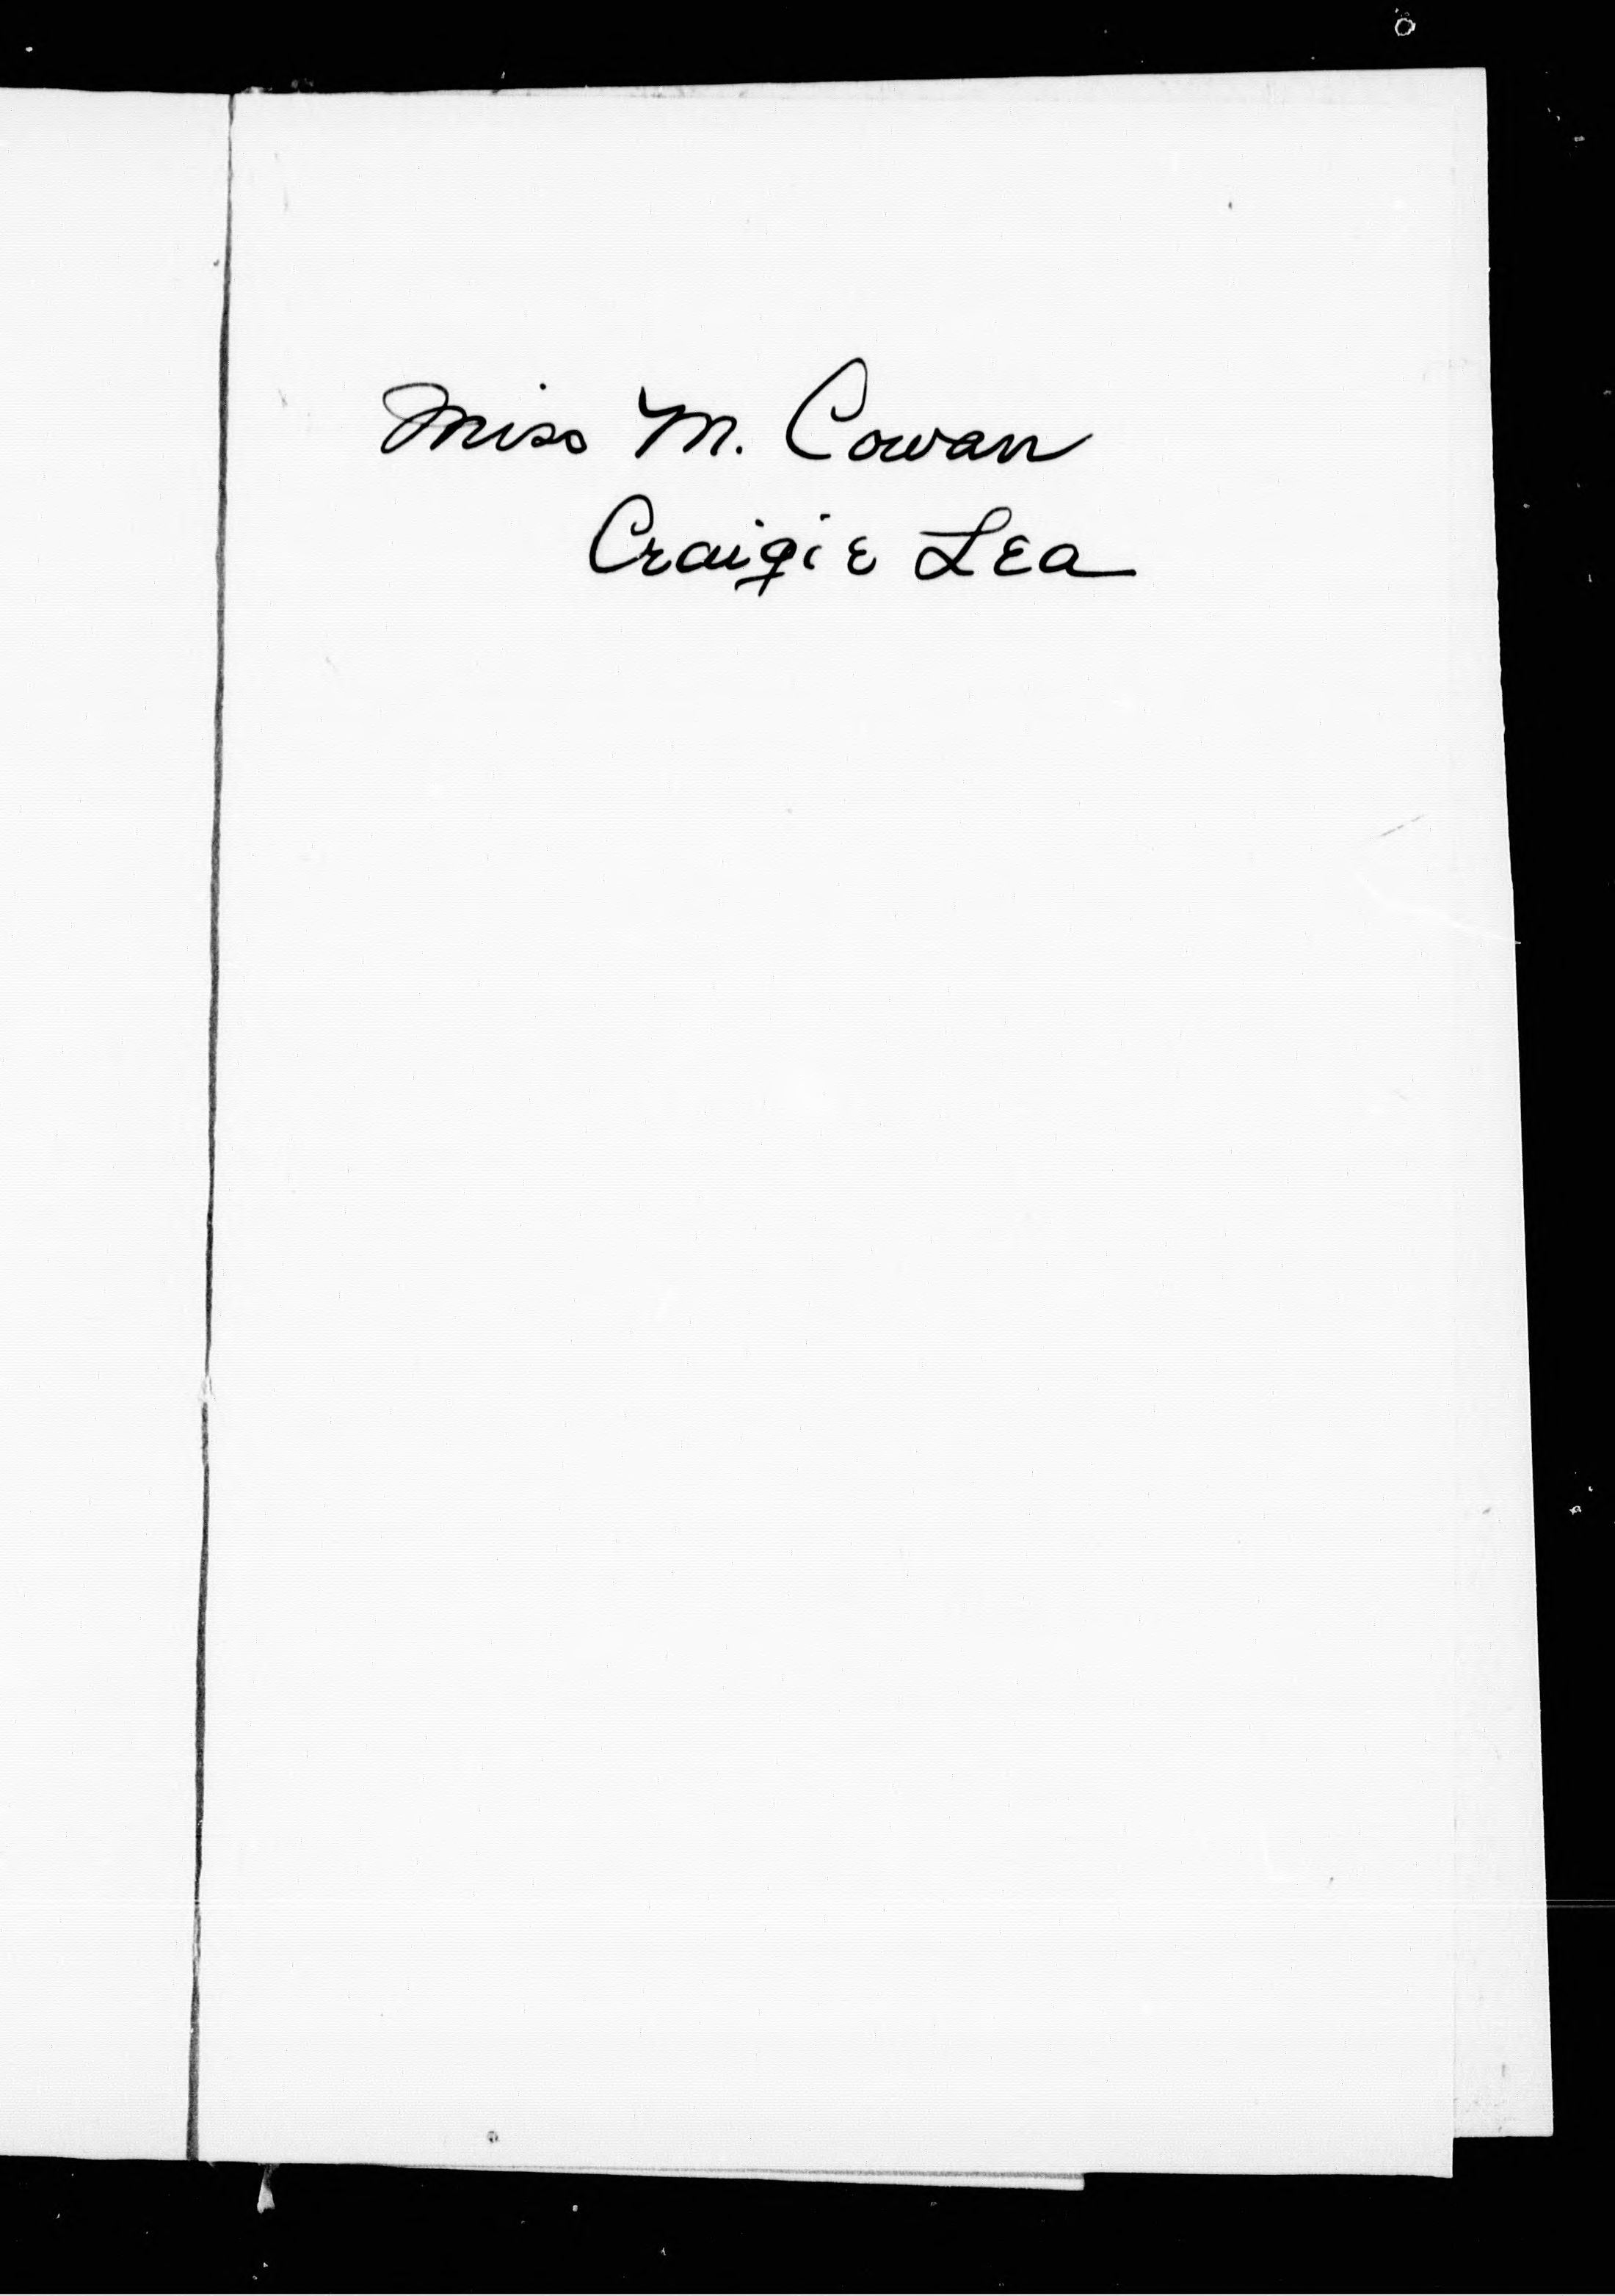 Miss M. Cowan
Craigie Lea